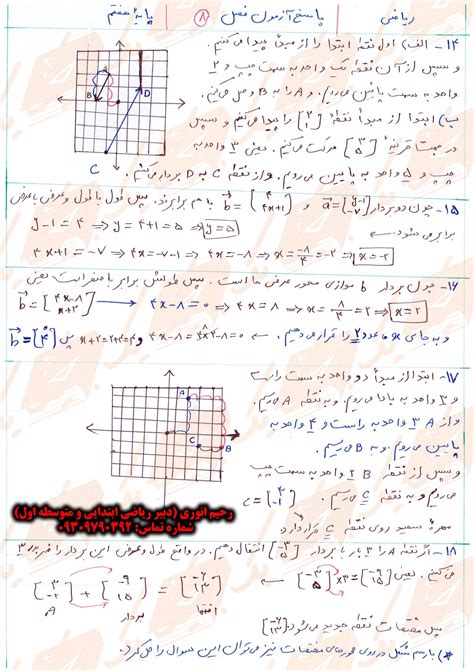 ریاضی
پاسخ آزمون فصل ۸
پایه هفتم
۱۴- الف) اول نقطه ابتدا را از مبدأ پیدا می‌کنیم
و سپس از آن نقطه یک واحد به سمت چپ و ۲
واحد به سمت پایین می‌رویم. و A را به B وصل می‌کنیم
ب) ابتدا از مبدأ نقطه [۱ ۲] را پیدا می‌کنیم و سپس
در جهت قرینهٔ [۳ ۵] حرکت می‌کنیم. یعنی ۳ واحد به
چپ و ۵ واحد به پایین می‌رویم. و از نقطه C به D بردار می‌کشیم.
A
B
D
C
۱۵- چون دو بردار a = [y-۱ -۷] و b = [۴ ۴x+۱] با هم برابرند. پس طول با طول و عرض با عرض
برابر می‌شود.
y-۱=۴ ⇒ y=۴+۱=۵ ⇒ y=۵
۴x+۱=-۷ ⇒ ۴x=-۷-۱ ⇒ ۴x=-۸ ⇒ x=-۸/۴=-۲ ⇒ x=-۲
۱۶- چون بردار b موازی محور عرض ها است. پس طولش برابر با صفر است یعنی
b = [۴x-۸ x+۲] → ۴x-۸=۰ ⇒ ۴x=۸ ⇒ x=۸/۴=۲ ⇒ x=۲
و به جای x ها عدد ۲ را قرار می‌دهیم. ← ۴x-۸=۴×۲-۸=۰ و x+۲=۲+۲=۴ پس b = [۰ ۴]
۱۷- ابتدا از مبدأ دو واحد به سمت راست
و ۳ واحد به بالا می‌رویم. و به نقطه A می‌رسیم.
و از A ۳ واحد به راست و ۴ واحد به
پایین می‌رویم. و به B می‌رسیم.
سپس از نقطه B ۲ واحد به سمت چپ
می‌رویم و به نقطه C می‌رسیم.
مهرهٔ سفید روی نقطه C قرار دارد
A
C
B
رحیم انوری (دبیر ریاضی ابتدایی و متوسطه اول)
شماره تماس: ۰۹۳۰۹۷۹۰۳۹۲
۱۸- اگر نقطه A را ۳ بار با بردار [-۳ ۵] انتقال دهیم. در واقع طول و عرض این بردار را ضربدر ۳
می‌کنیم. یعنی [-۳ ۵]×۳=[-۹ ۱۵]
[۳ -۲] + [-۹ ۱۵] = [-۶ ۱۳]
A
بردار
انتها
پس مختصات نقطه جدید می‌شود: [-۶ ۱۳]
*) با رسم شکل در روی محورهای مختصات نیز می‌توان این سوال را حل کرد.